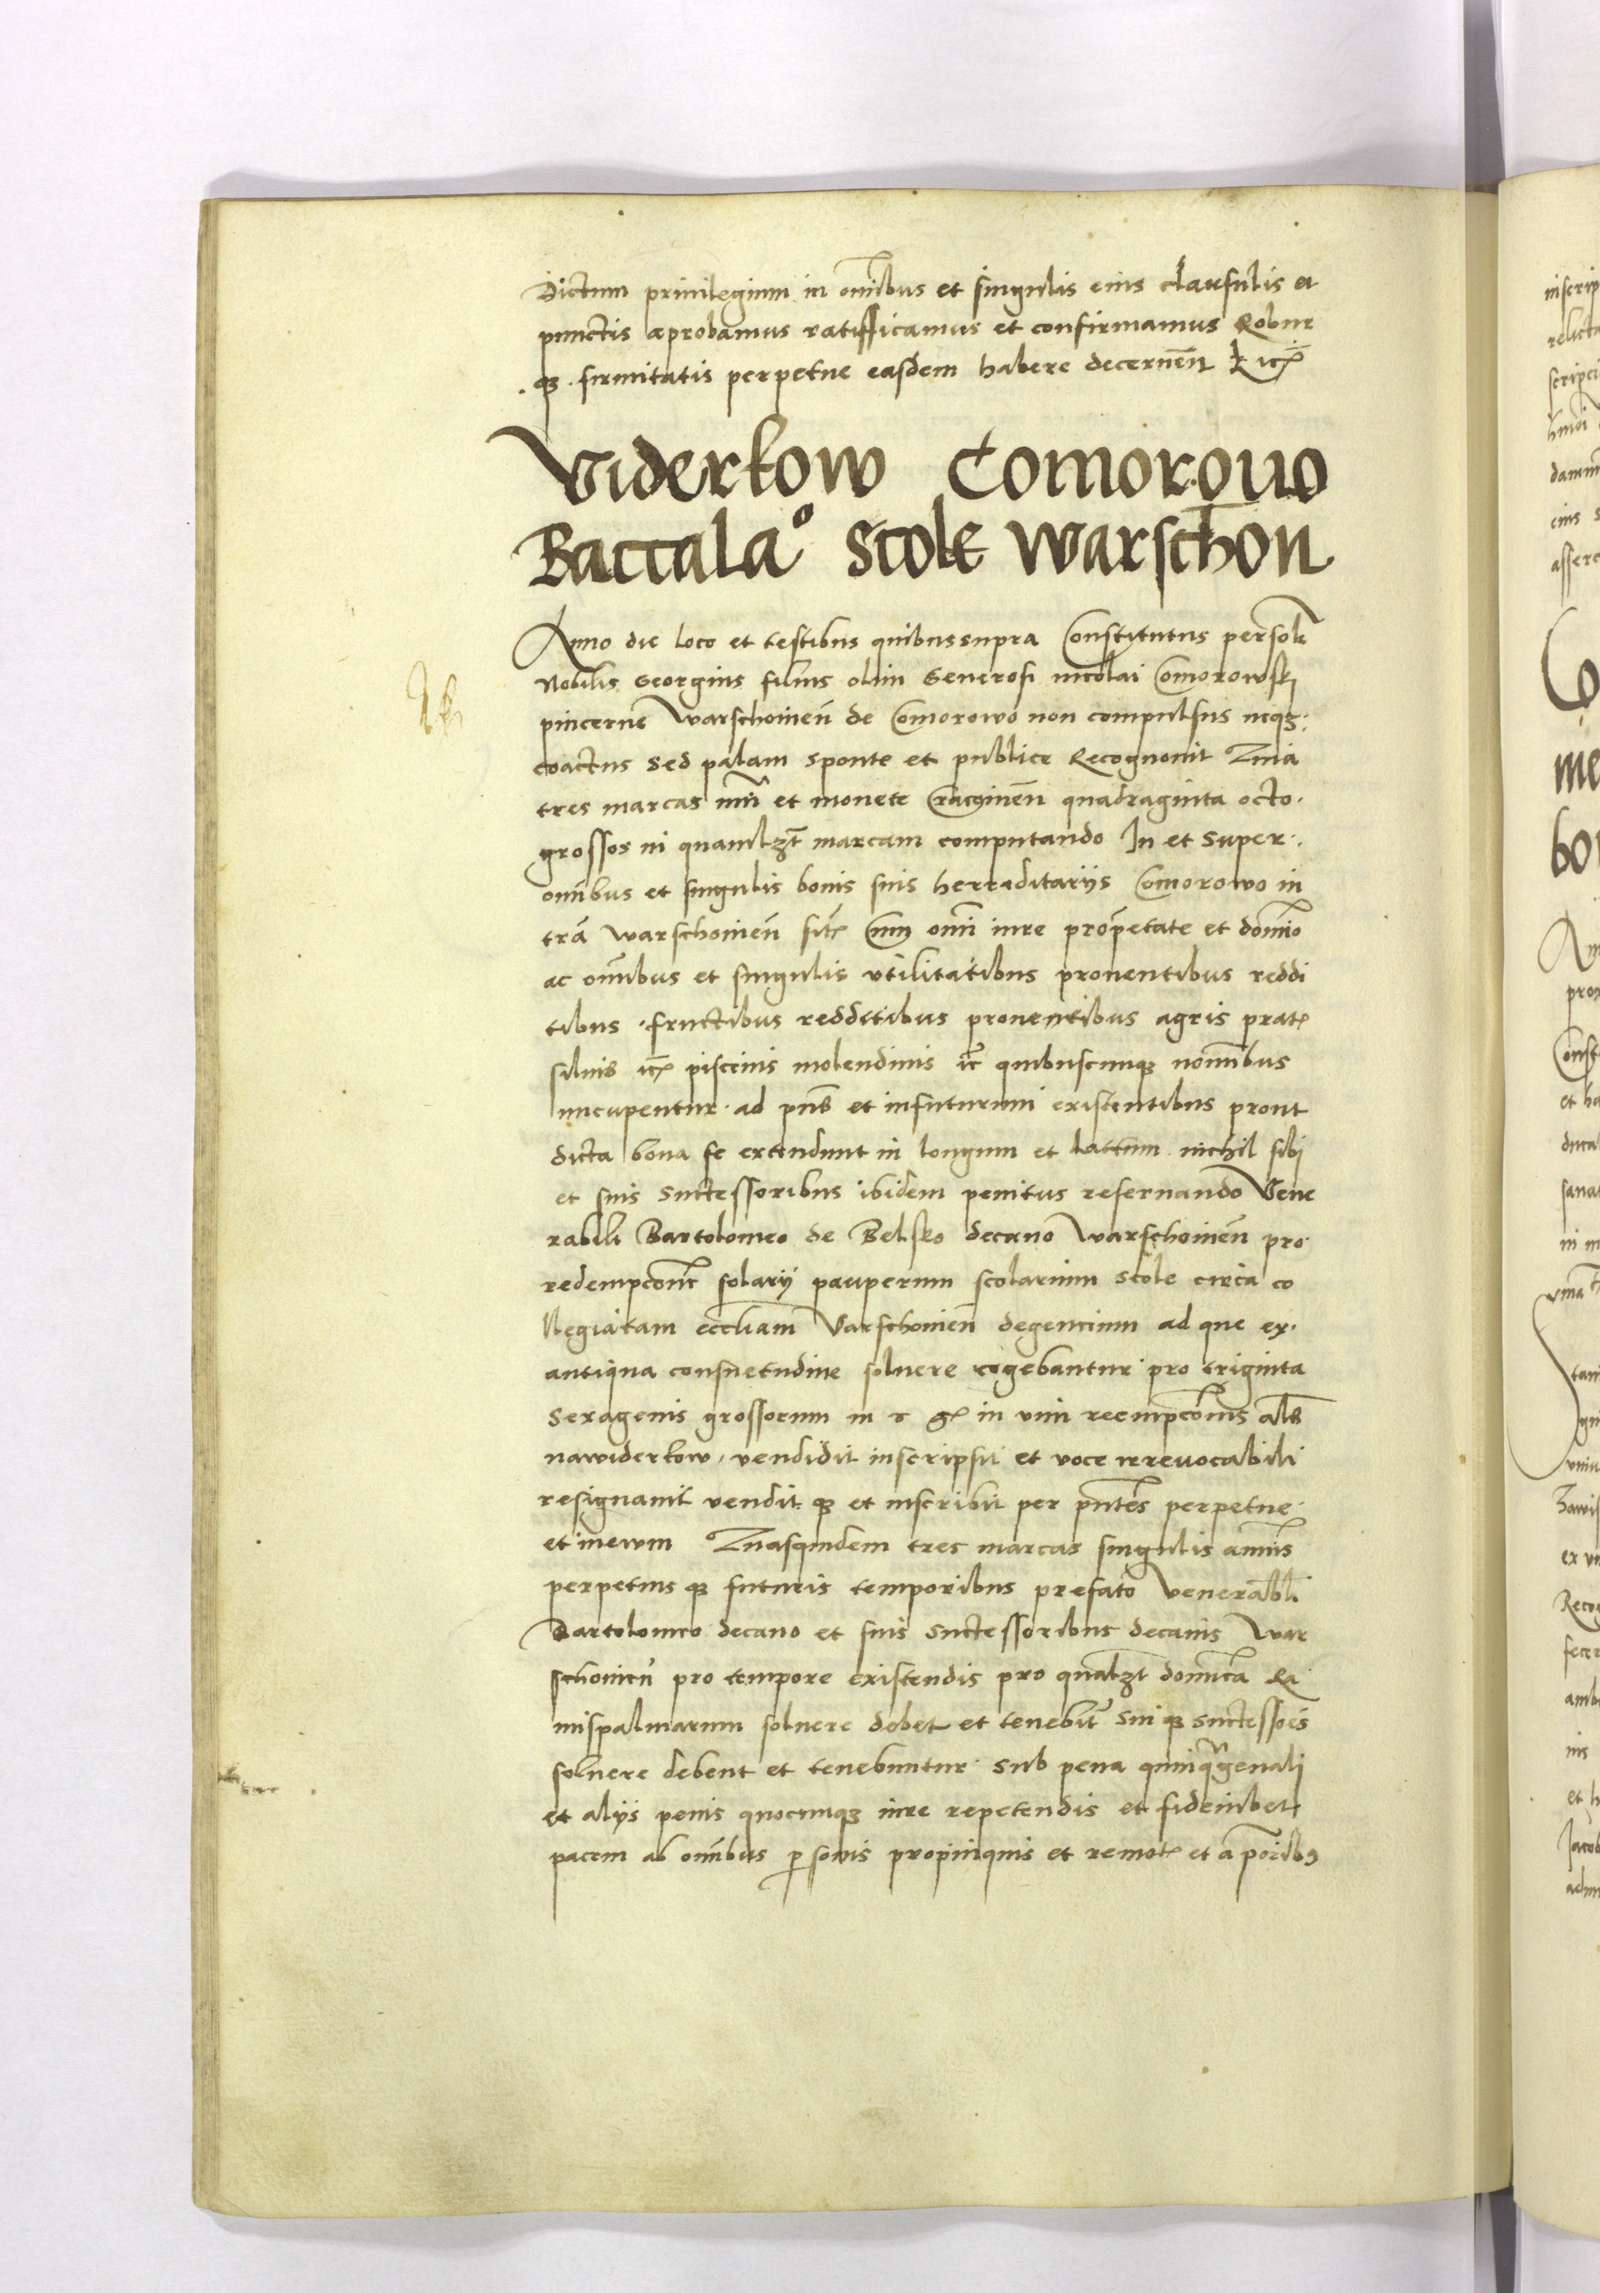 Dictum priuilegium in om̃ibus et singulis eius clausulis et
punctis aprobamus ratifficamus et confirmamus Robur
qꝫ firmitatis perpetue easdem habere decerneñ
Viderkow Comorouo
Baccalaº Scole Warschon
Anno die loco et testibus quibus supra Constitutus persolr̃
Nobilis Georgius filius olim Generosi nicolai Comorowskj
pincerne Warschouieñ de Comorowo non compulsus neqꝫ
coactus sed palam sponte et publice Recognouit Quia
tres marcas et monete quadraginta octo
grossos in quamlꝫt marcam computando In et super
om̃ibus et singulis bonis suis herreditarijs Comorowo in
tr̃a warschouieñ sit̃ Cum om̃i iure prop̃etate et domı̃o
ac om̃ibus et singulis vtilitatibus prouentibus reddi
tibus fructibus redditibus prouentibus agris prat̃
siluis piscinis molendinis quibuscumqꝫ nomı̃bus
nucupentur ad pñs et infuturum existentibus prout
dicta bona se extendunt in longum et lattum nichil sibi
et suis successoribus ibidem penitus reseruando Vene
rabili Bartolomeo de Belsko decano Warschouieñ pro
redempc̃one solarij pauperum scolarium scole circa co
llegiatam eccl̃iam Varschouieñ degencium ad que ex
antiqua consuetudine soluere cogebantur pro triginta
sexagenis grossorum in vim reempc̃onis al̃s
nawiderkow vendidit inscripsit et voce irreuocabili
resignauit vendit qꝫ et inscribit per pñtes perpetue
et ineuum Quasquidem tres marcas singulis annis
perpetuis qꝫ futuris temporibus prefato venerabli
Bartolomeo decano et suis successoribus decanis War
schouieñ pro tempore existendis pro qualꝫt domı̃ca Ra
mispalmarum soluere debet et tenebit̃ sui qꝫ successoẽs
soluere debent et tenebuntur sub pena quinqᵃgenali
et alijs penis quocumqꝫ iure repetendis et fideiubet
pacem ab om̃ibus ꝑsonis propinquis et remot̃ et a p̃orib9